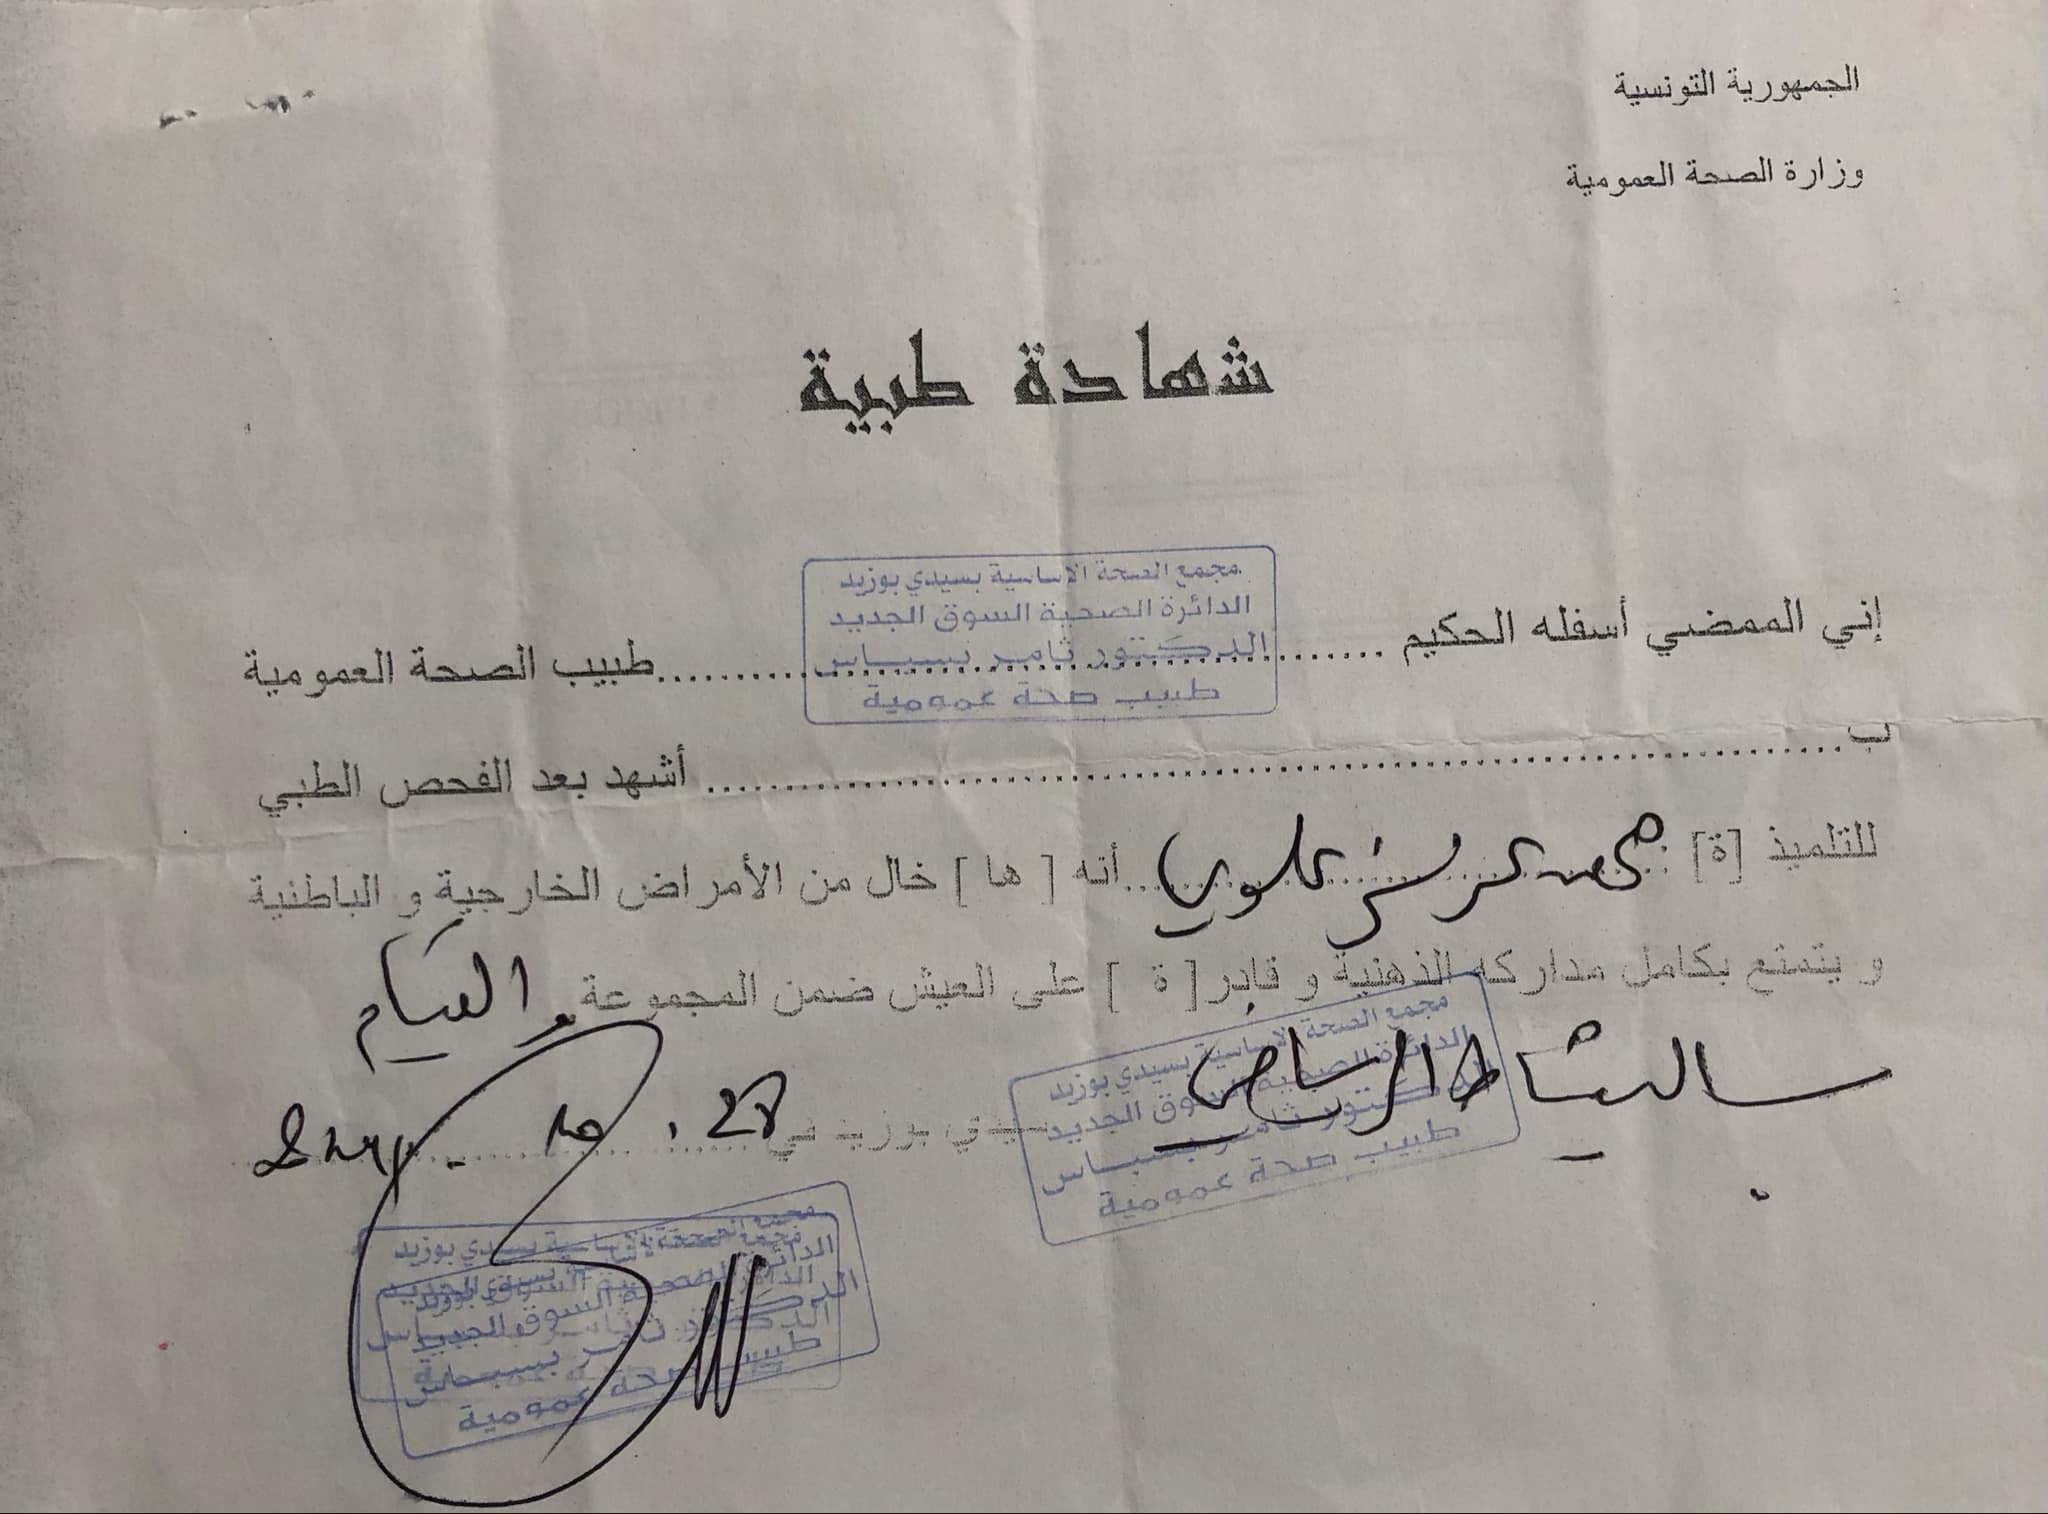 الجمهورية التونسية
وزارة الصحة العمومية
شهادة طبية
مجمع الصحة الاساسية بسيدي بوزيد
الدائرة الصحية السوق الجديد
الدكتور ثامر بسباس
طبيب صحة عمومية
إني الممضي أسفله الحكيم ........ طبيب الصحة العمومية
ب........ أشهد بعد الفحص الطبي
للتلميذ [ة] : محمد علوي ........ أنه [ ها ] خال من الأمراض الخارجية و الباطنية
و يتمتع بكامل مداركه الذهنية و قادر [ ة ] على العيش ضمن المجموعة و القيام
بالنشاط الرياضي
مجمع الصحة الاساسية بسيدي بوزيد
الدائرة الصحية السوق الجديد
الدكتور ثامر بسباس
طبيب صحة عمومية
سيدي بوزيد في ........ 28
مجمع الصحة الاساسية بسيدي بوزيد
الدائرة الصحية السوق الجديد
الدكتور ثامر بسباس
طبيب صحة عمومية